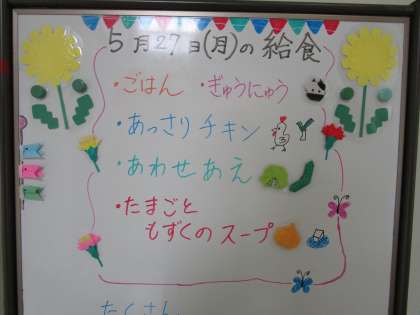 5月27日(月)の給食
・ごはん ・ぎゅうにゅう
・あっさりチキン
・あわせあえ
・たまごと
もずくのスープ
たくさん